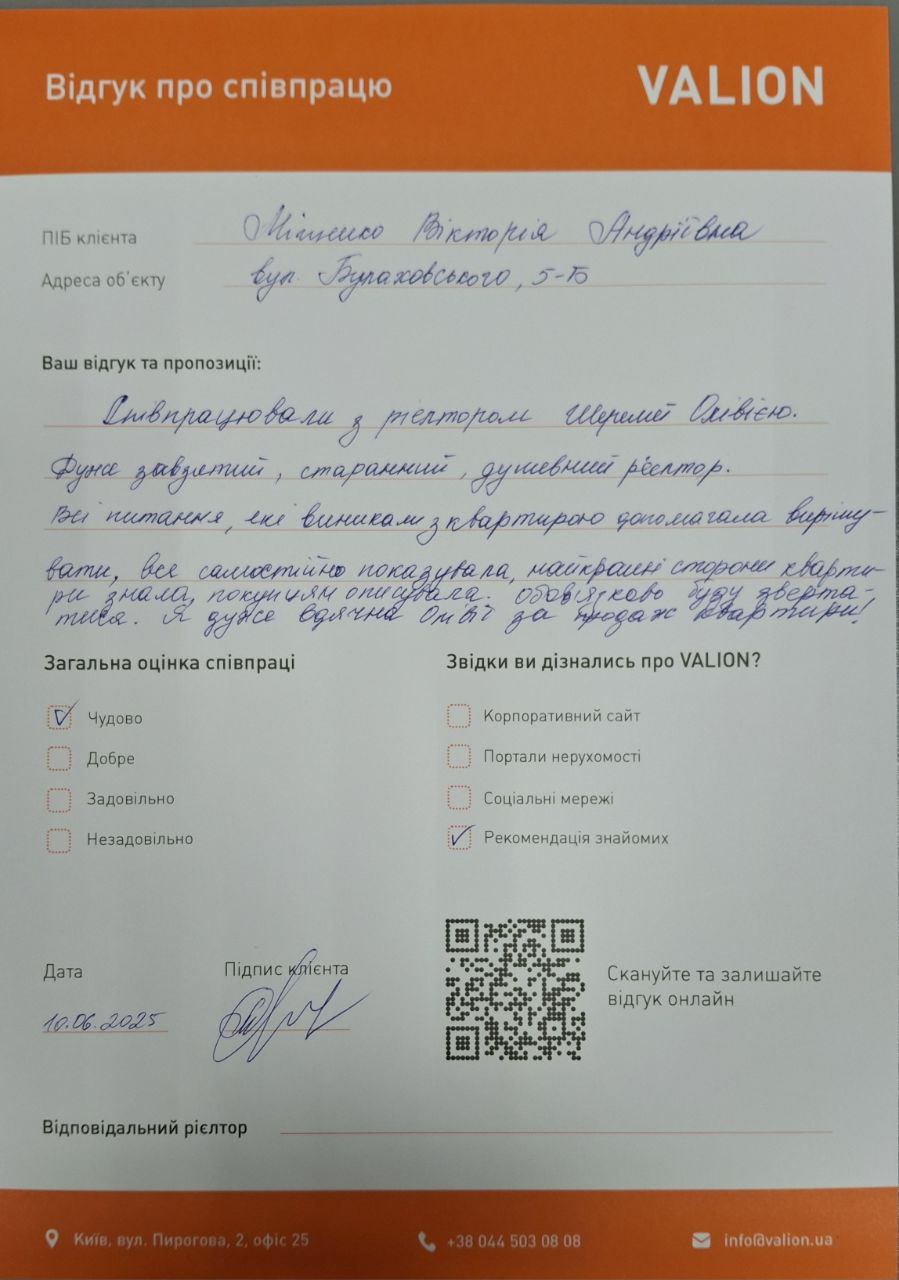 Відгук про співпрацю
VALION
ПІБ клієнта Вікторія Андріївна
Адреса об'єкту вул. Булаховського, 5-Б
Ваш відгук та пропозиції:
Співпрацювали з рієлтором Шеремет Олівією.
Дуже завзятий, старанний, душевний рієлтор.
Всі питання, які виникали з квартирою допомагала виріщу-
вати, все самостійно показувала, найкращі сторони кварти-
ри знала, покупцям описувала. обов'язково буду зверта-
тися. Я дуже вдячна Олівії за продаж квартири!
Загальна оцінка співпраці
Чудово
Добре
Задовільно
Незадовільно
Звідки ви дізнались про VALION?
Корпоративний сайт
Портали нерухомості
Соціальні мережі
Рекомендація знайомих
Дата 10.06.2025
Підпис клієнта
Скануйте та залишайте
відгук онлайн
Відповідальний рієлтор
Київ, вул. Пирогова, 2, офіс 25
+38 044 503 08 08
info@valion.ua